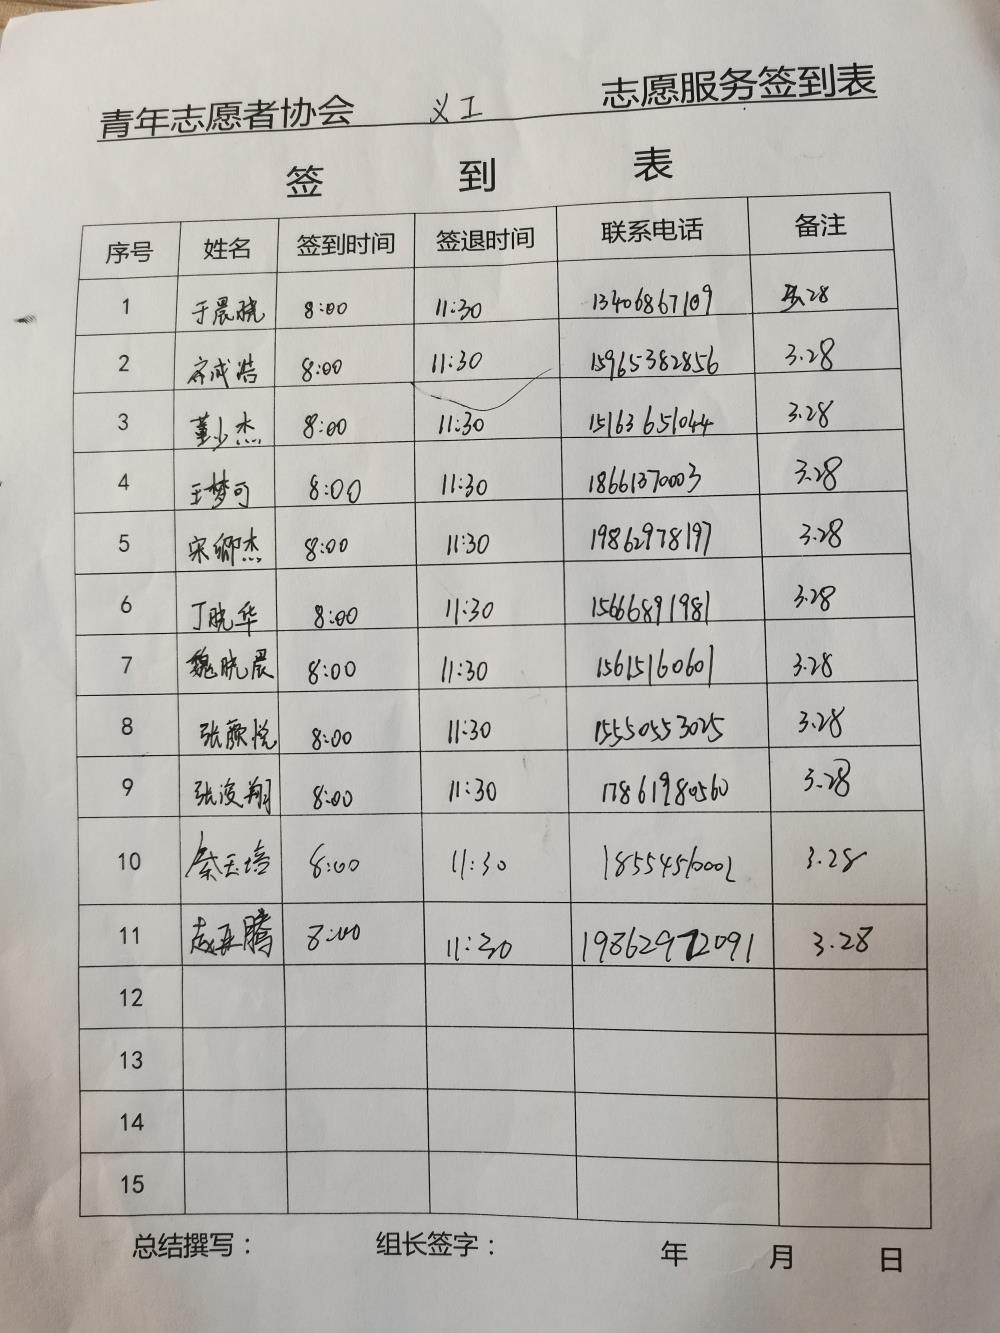 青年志愿者协会 义工 志愿服务签到表
签 到 表
序号 姓名 签到时间 签退时间 联系电话 备注
1 于晨晓 8:00 11:30 13406867109 3.28
2 齐成浩 8:00 11:30 15965382856 3.28
3 董少杰 8:00 11:30 15163651044 3.28
4 王梦可 8:00 11:30 18661370003 3.28
5 宋卿杰 8:00 11:30 19862978197 3.28
6 丁晓华 8:00 11:30 15666891981 3.28
7 魏晓晨 8:00 11:30 15615160601 3.28
8 张颜悦 8:00 11:30 15550553025 3.28
9 张浚翔 8:00 11:30 17861980560 3.28
10 蔡玉培 8:00 11:30 3.28
11 8:00 11:30 19862972091 3.28
12
13
14
15
总结撰写： 组长签字： 年 月 日